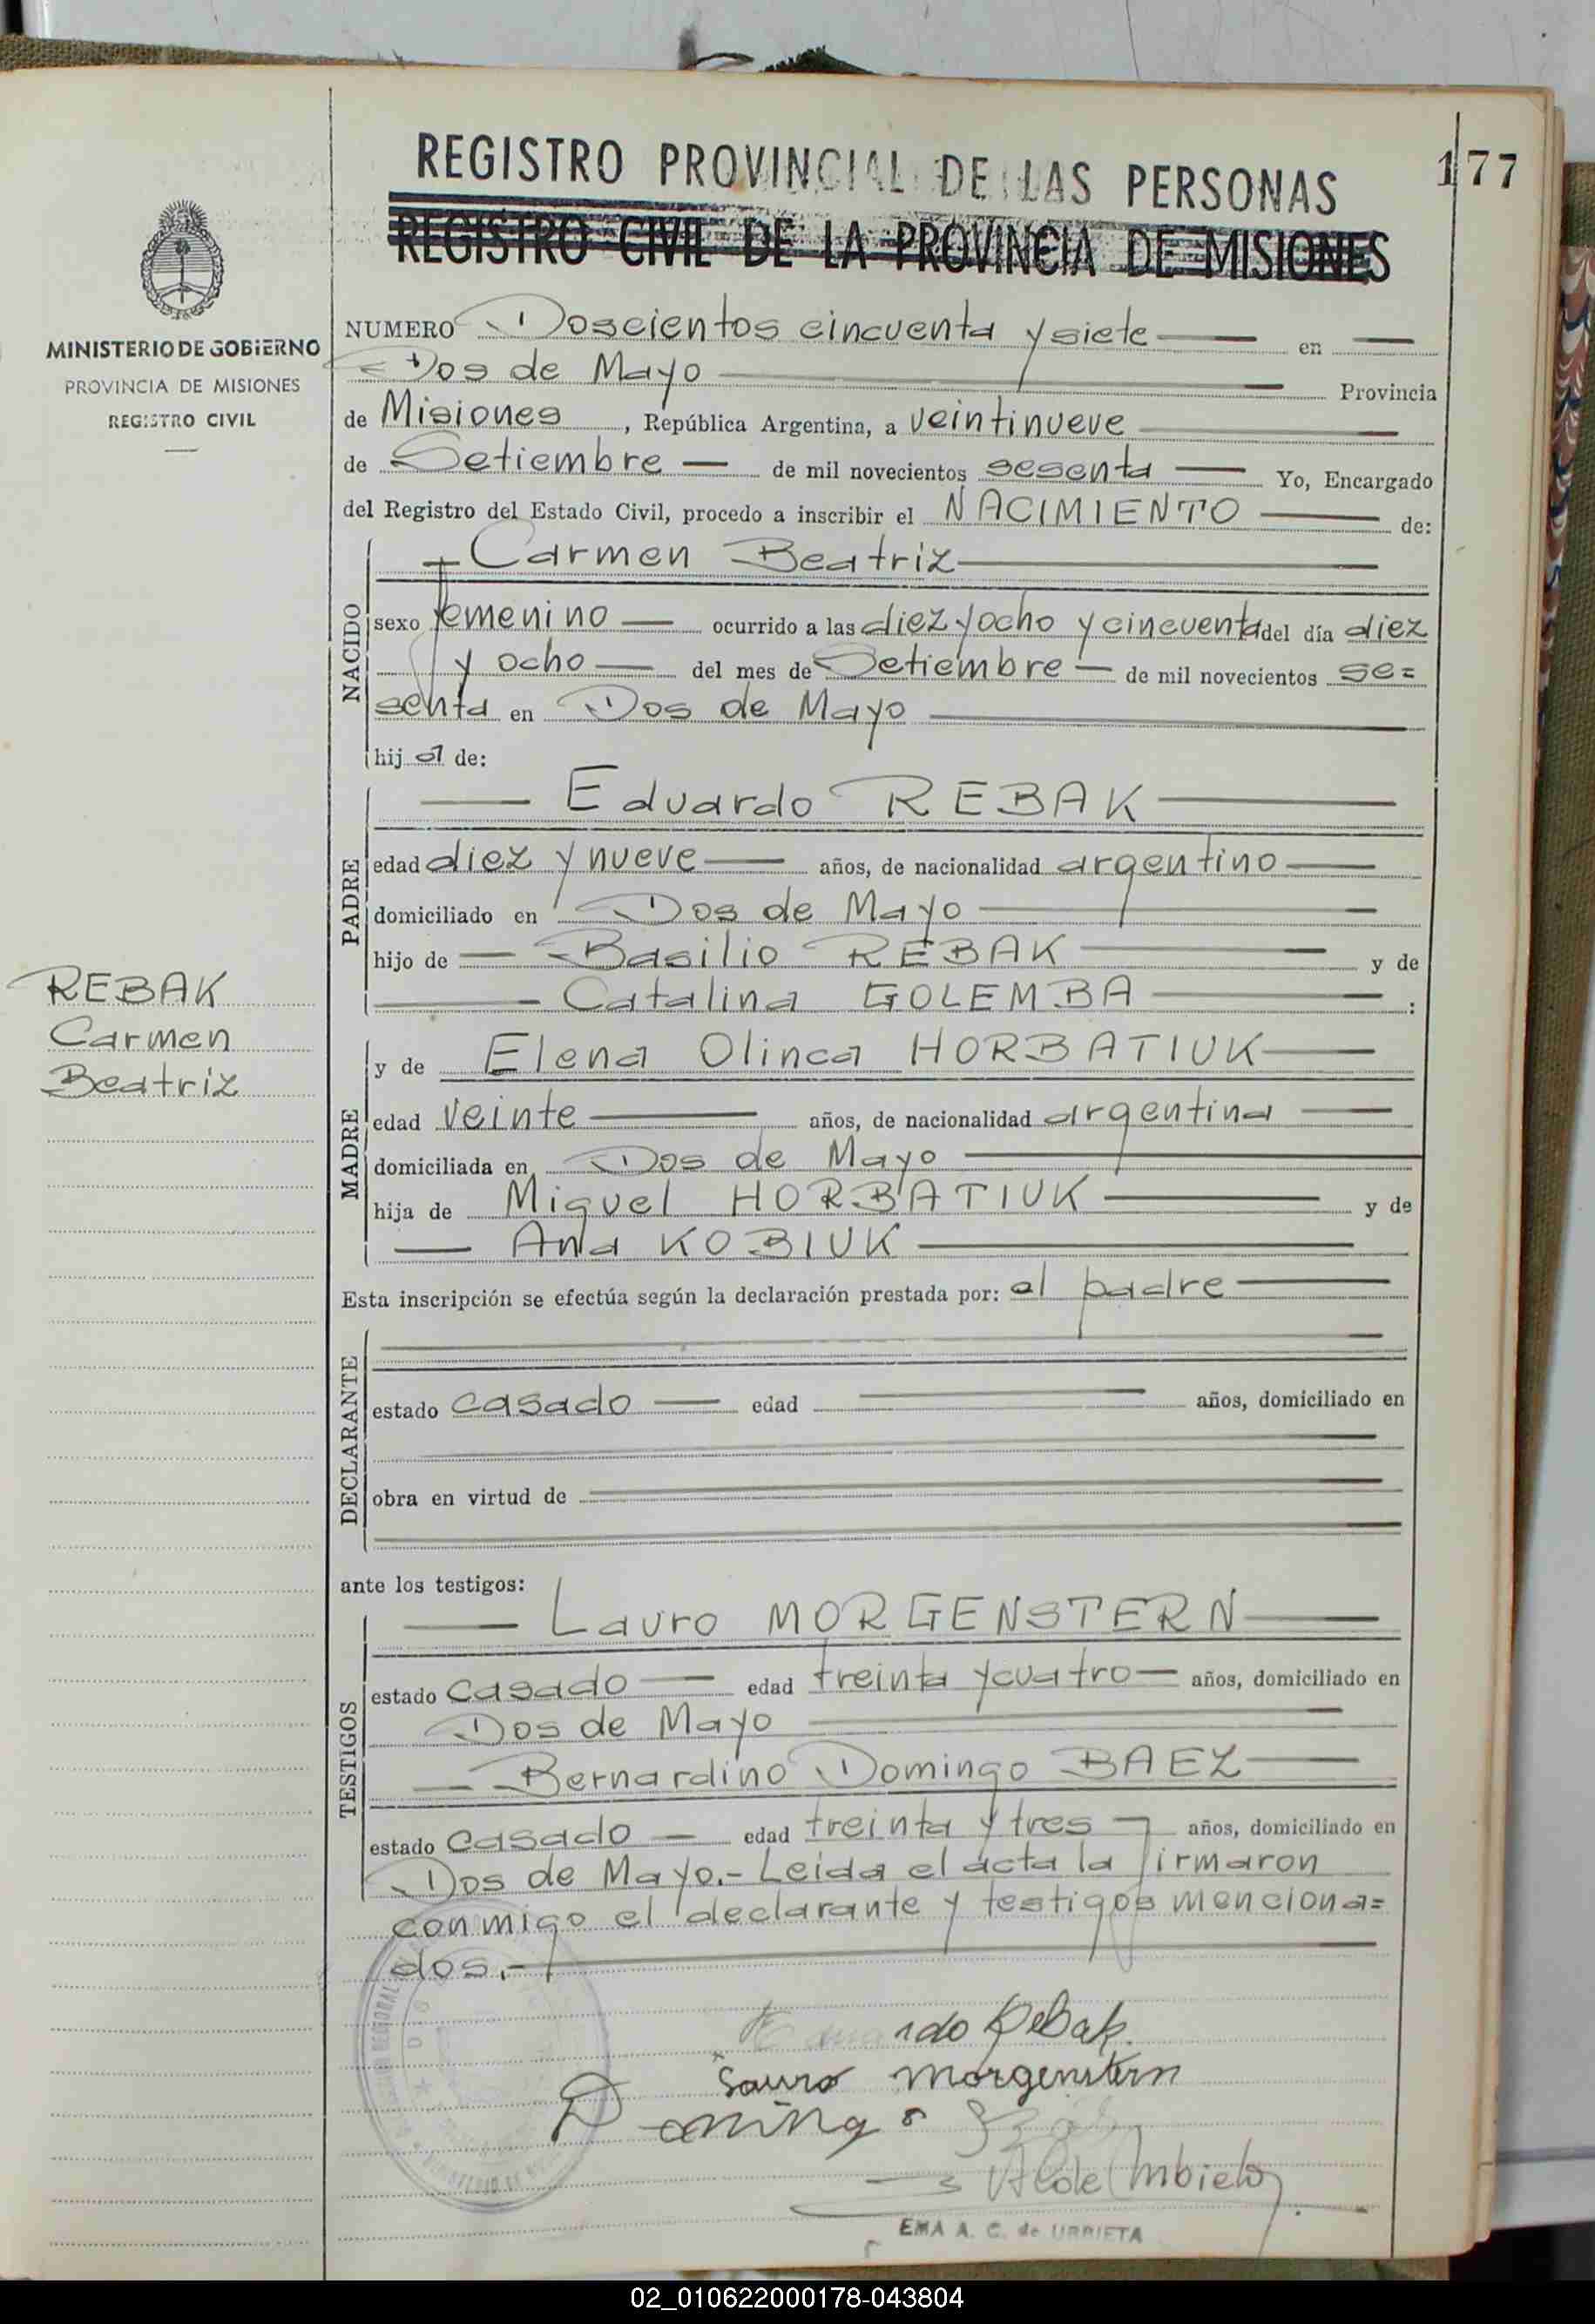 177
REGISTRO PROVINCIAL DE LAS PERSONAS
REGISTRO CIVIL DE LA PROVINCIA DE MISIONES
MINISTERIO DE GOBIERNO
PROVINCIA DE MISIONES
REGISTRO CIVIL
REBAK
Carmen
Beatriz
NUMERO Doscientos cincuenta y siete en
Dos de Mayo Provincia
de Misiones, República Argentina, a veintinueve
de Setiembre de mil novecientos sesenta Yo, Encargado
del Registro del Estado Civil, procedo a inscribir el NACIMIENTO de:
NACIDO
Carmen Beatriz
sexo femenino ocurrido a las diez y ocho y cincuenta del día diez
y ocho del mes de Setiembre de mil novecientos se=
senta en Dos de Mayo
hij a de:
PADRE
Eduardo REBAK
edad diez y nueve años, de nacionalidad argentino
domiciliado en Dos de Mayo
hijo de Basilio REBAK y de
Catalina GOLEMBA :
MADRE
y de Elena Olinca HORBATIUK
edad veinte años, de nacionalidad argentina
domiciliada en Dos de Mayo
hija de Miguel HORBATIUK y de
Ana KOBIUK
Esta inscripción se efectúa según la declaración prestada por: el padre
DECLARANTE
estado casado edad años, domiciliado en
obra en virtud de
ante los testigos:
TESTIGOS
Lauro MORGENSTERN
estado casado edad treinta y cuatro años, domiciliado en
Dos de Mayo
Bernardino Domingo BAEZ
estado casado edad treinta y tres años, domiciliado en
Dos de Mayo.- Leida el acta la firmaron
conmigo el declarante y testigos menciona=
dos.-
Eduardo Rebak.
Lauro Morgenstern
Domingo
EMA A. C. de URRIETA
02_010622000178-043804